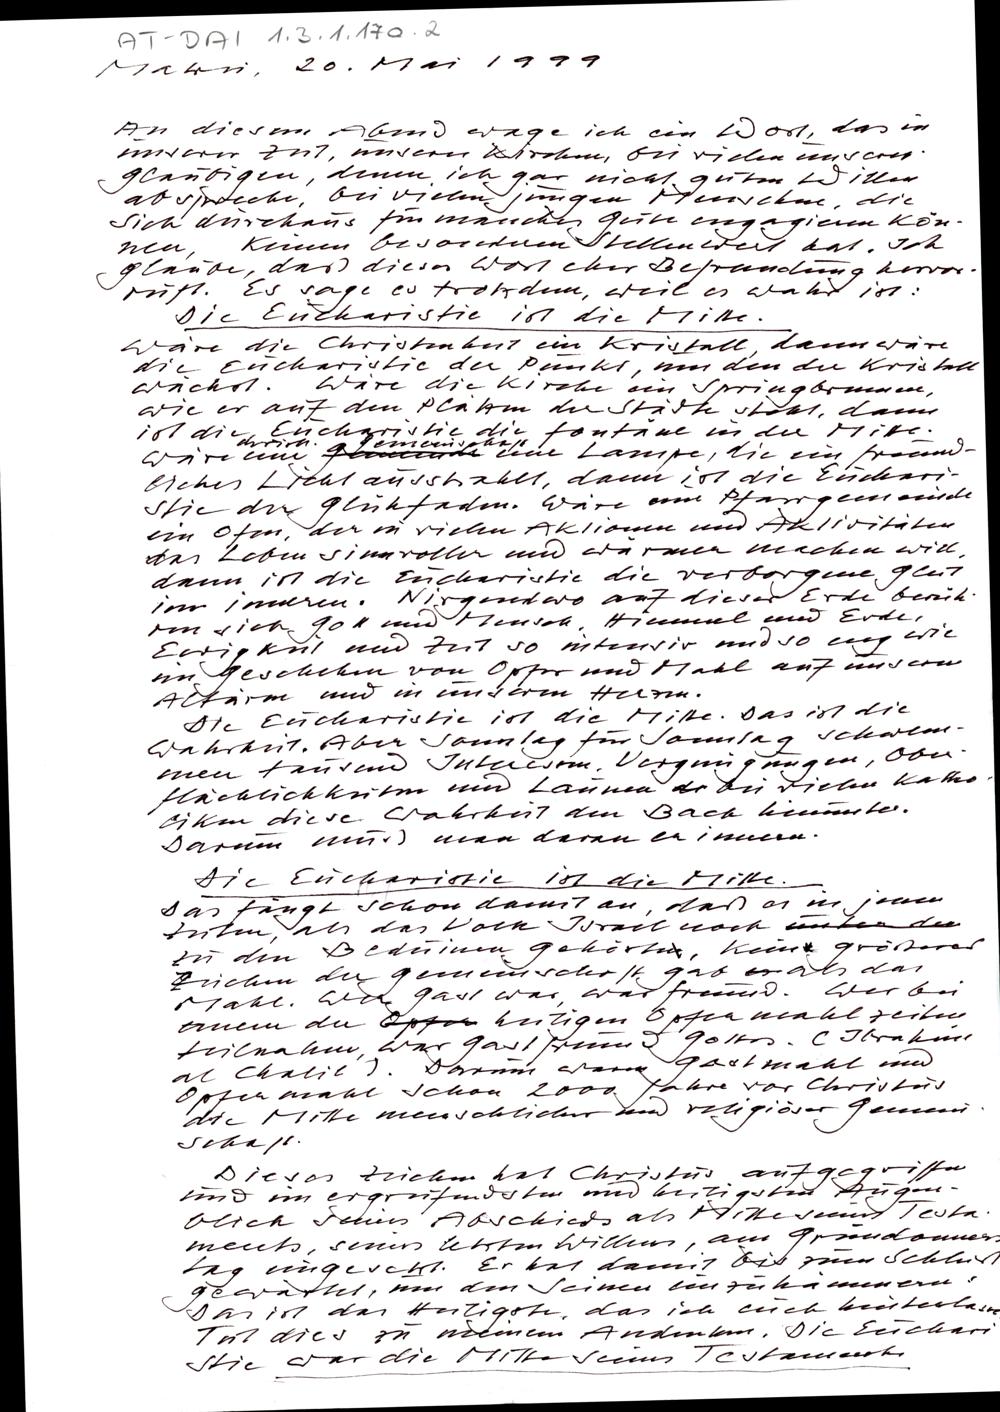 AT-DAI 1.3.1.170.2
20. Mai 1999
An diesem Abend wage ich ein Wort, das in
unserer Zeit, unseren Kirchen, bei vielen unserer
Gläubigen, denen ich gar nicht guten Willen
abspreche, bei vielen jungen Menschen, die
sich durchaus für manches Gute engagieren kön-
nen, keinen besonderen Stellenwert hat. Ich
glaube, daß dieses Wort eher Befremdung hervor-
ruft. Es sage es trotzdem, weil es wahr ist:
Die Eucharistie ist die Mitte.
Wäre die Christenheit ein Kristall, dann wäre
die Eucharistie der Punkt, um den der Kristall
wächst. Wäre die Kirche ein Springbrunnen,
wie er auf den Plätzen der Städte steht, dann
ist die Eucharistie die Fontäne in der Mitte.
christl. Gemeinschaft
Wäre eine Gemeinde eine Lampe, die ein freund-
liches Licht ausstrahlt, dann ist die Euchari-
stie der Glühfaden. Wäre eine Pfarrgemeinde
ein Ofen, der in vielen Aktionen und Aktivitäten
das Leben sinnvoller und wärmer machen will,
dann ist die Eucharistie die verborgene Glut
im inneren. Nirgendwo auf dieser Erde berüh-
ren sich Gott und Mensch, Himmel und Erde,
Ewigkeit und Zeit so intensiv und so eng wie
im Geschehen von Opfer und Mahl auf unseren
Altären und in unseren Herzen.
Die Eucharistie ist die Mitte. Das ist die
Wahrheit. Aber Sonntag für Sonntag schwem-
men tausend Interessen, Vergnügungen, Ober-
flächlichkeiten und Launen bei vielen Katho-
liken diese Wahrheit den Bach hinunter.
Darum muß man daran erinnern.
Die Eucharistie ist die Mitte.
Das fängt schon damit an, daß es in jenen
Zeiten, als das Volk Israel noch unter den
zu den Beduinen gehörte, kein größeres
Zeichen der Gemeinschaft gab als das
Mahl. Wer Gast war, war Freund. Wer bei
einem der Opfer heiligen Opfermahlzeiten
teilnahm, war Gastfreund Gottes. (Ibrahim
al Chalil). Darum waren Gastmahl und
Opfermahl schon 2000 Jahre vor Christus
die Mitte menschlicher und religiöser Gemein-
schaft.
Dieses Zeichen hat Christus aufgegriffen
und im ergreifendsten und heiligsten Augen-
blick seines Abschieds als Mitte seines Testa-
ments, seines letzten Willens, am Gründonners-
tag eingesetzt. Er hat damit bis zum Schluß
gewartet, um den Seinen einzuhämmern:
Das ist das Heiligste, das ich euch hinterlasse
Tut dies zu meinem Andenken. Die Euchari
stie war die Mitte seines Testaments